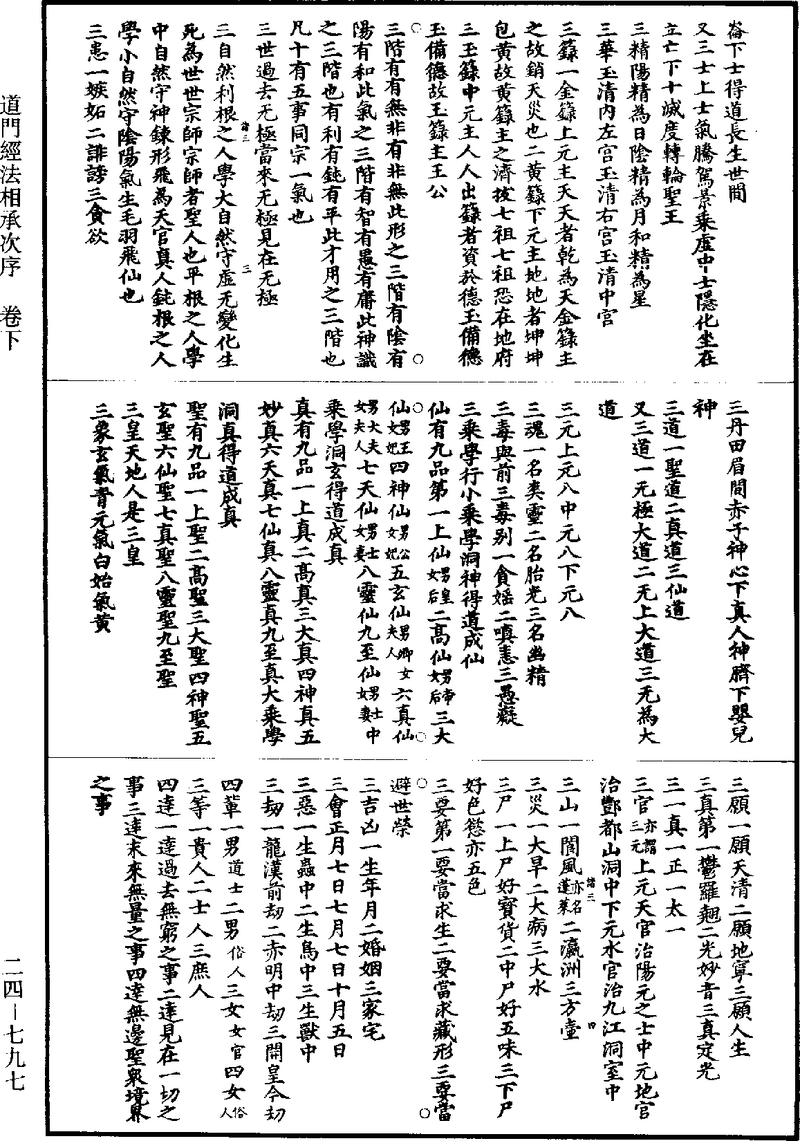 崙下士得道長生世間
又三士上士氣騰駕景乘虛中士隱化坐在
立亡下士滅度轉輪聖王
三精陽精為日陰精為月和精為星
三華玉清內左宮玉清右宮玉清中宮
三籙一金籙上元主天天者乾為天金籙主
之故銷天災也二黃籙下元主地地者坤坤
包黃故黃籙主之濟拔七祖七祖恐在地府
三玉籙中元主人人出籙者資於德玉備德
玉備德故玉籙主王公
三階有有無非有非無此形之三階有陰有
陽有和此氣之三階有智有愚有庸此神識
之三階也有利有鈍有平此才用之三階也
凡十有五事同宗一氣也
三世過去无極當來无極見在无極
三自然利根之人學大自然守虛无變化生
死為世世宗師宗師者聖人也平根之人學
中自然守神鍊形飛為天官真人鈍根之人
學小自然守陰陽氣生毛羽飛仙也
三恚一嫉妬二誹謗三貪欲
三丹田眉間赤子神心下真人神臍下嬰兒
神
三道一聖道二真道三仙道
又三道一无極大道二无上大道三无為大
道
三元上元八中元八下元八
三魂一名爽靈二名胎光三名幽精
三毒與前三毒別一貪婬二嗔恚三愚癡
三乘學行小乘學洞神得道成仙
仙有九品第一上仙男皇女后二高仙男帝女后三大
仙男王女妃四神仙男公女妃五玄仙男卿女夫人六真仙
男大夫女夫人七天仙男士女妻八靈仙九至仙男士女妻中
乘學洞玄得道成真
真有九品一上真二高真三大真四神真五
妙真六天真七仙真八靈真九至真大乘學
洞真得道成真
聖有九品一上聖二高聖三大聖四神聖五
玄聖六仙聖七真聖八靈聖九至聖
三皇天地人是三皇
三象玄氣青元氣白始氣黃
三願一願天清二願地寧三願人生
三真第一鬱羅翹二光妙音三真定光
三一真一正一太一
三官亦謂三元上元天官治陽元之士中元地官
治酆都山洞中下元水官治九江洞室中
三山一閬風亦名蓬萊二瀛洲三方壼
三災一大旱二大病三大水
三尸一上尸好寶貨二中尸好五味三下尸
好色慾亦五色
三要第一要當求生二要當求藏形三要當
避世榮
三吉凶一生年月二婚姻三家宅
三會正月七日七月七日十月五日
三惡一生蟲中二生鳥中三生獸中
三劫一龍漢前劫二赤明中劫三開皇今劫
四輩一男道士二男俗人三女女官四女俗人
三等一貴人二士人三庶人
四達一達過去無窮之事二達見在一切之
事三達未來無量之事四達無邊聖衆境界
之事
道門經法相承次序　卷下
二四—七九七